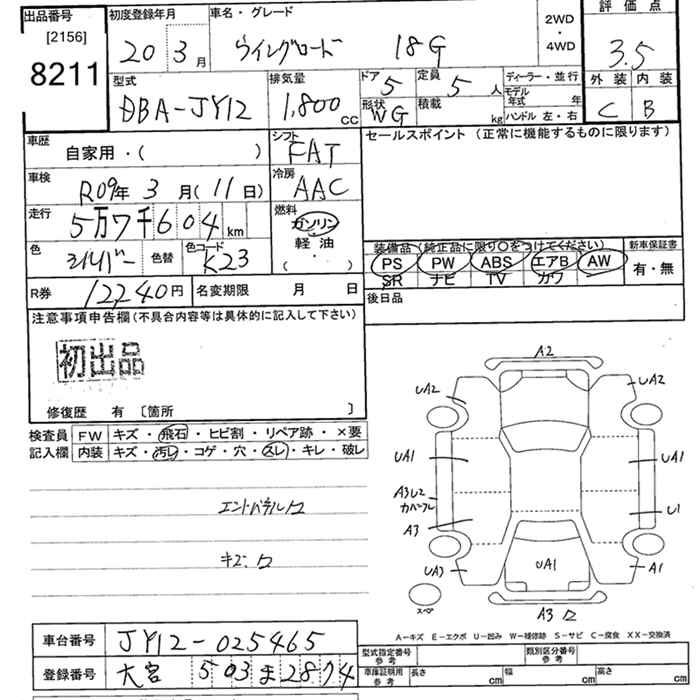 出品番号 初度登録年月 車名・グレード 評価点
[2156] 20年 3月 ウイングロード 18G 2WD・4WD 3.5
8211 外装 内装
型式 排気量 ドア 定員 ディーラー・並行 C B
DBA-JY12 1,800cc 5 5人 モデル年式 年
形状 積載 ハンドル 左・右
WG kg
車歴 シフト セールスポイント (正常に機能するものに限ります)
自家用・( ) FAT
車検 冷房
R09年 3月 (11日) AAC
走行 燃料
5万7千604km ガソリン
軽油
( )
色 シルバー 色替 色コード K23
装備品 (純正品に限り○をつけてください) 新車保証書
PS PW ABS エアB AW 有・無
SR ナビ TV カワ
R券 12240円 名変期限 月 日
後日品
注意事項申告欄 (不具合内容等は具体的に記入して下さい)
初出品
修復歴 有 〔箇所 〕
検査員 FW キズ・飛石・ヒビ割・リペア跡・×要
記入欄 内装 キズ・汚レ・コゲ・穴・スレ・キレ・破レ
エンドパネル
A2
UA2 UA2
UA1 UA1
A3 U2 U1
カバーフル
A3
UA3 UA1 A1
スペア
A3
A-キズ E-エクボ U-凹み W-補修跡 S-サビ C-腐食 XX-交換済
車台番号 JY12-025465
登録番号 大宮 503 ま 2874
型式指定番号 参考 類別区分番号 参考
車庫証明用 参考 長さ cm 幅 cm 高さ cm